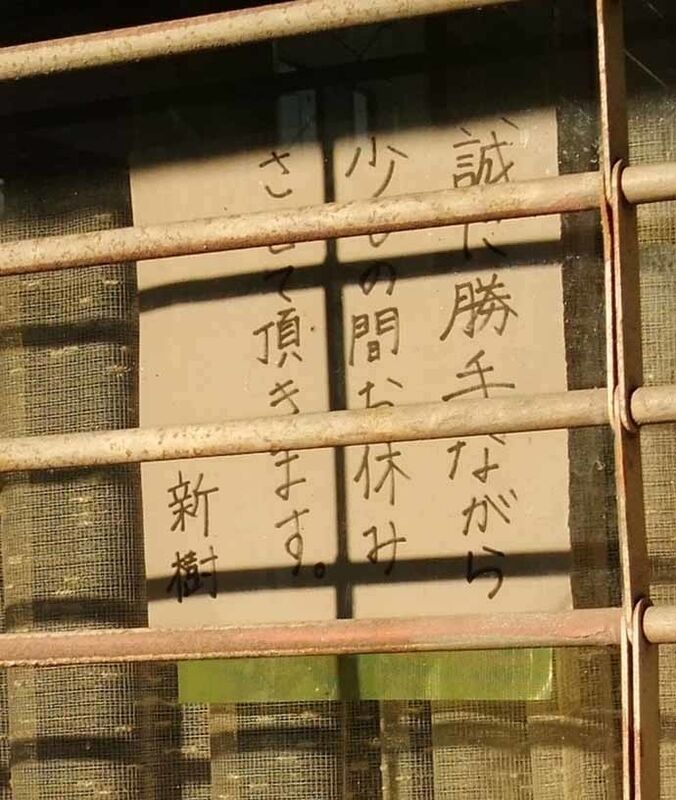 誠に勝手ながら
少しの間お休み
させて頂きます。
新樹